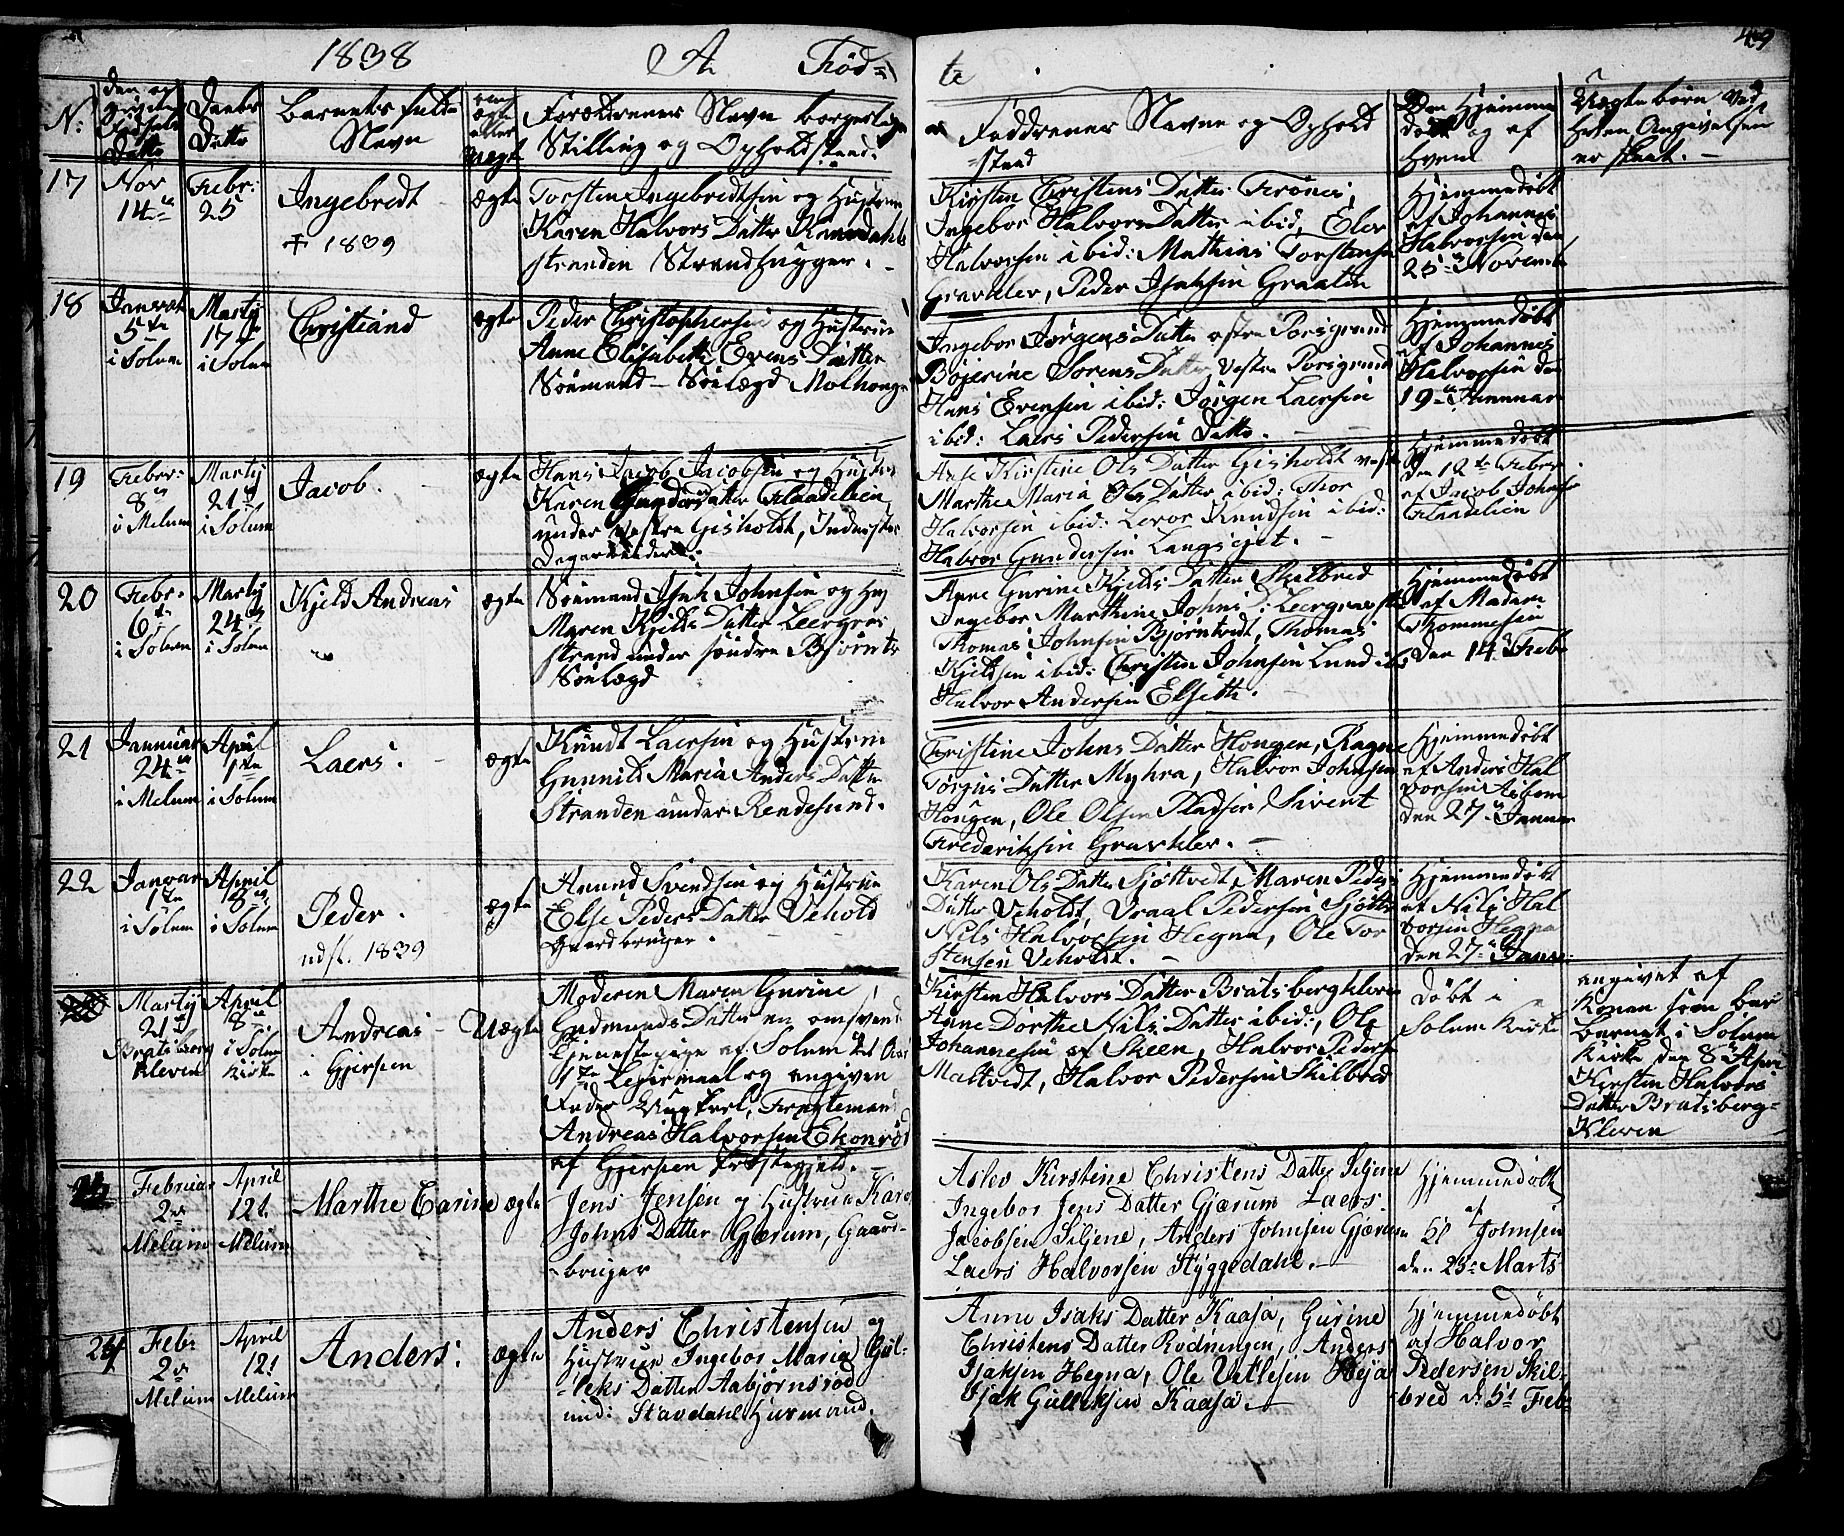 1838 A Föd=
te
49
N:
Den og
Fødsels
Datto
Daabs
Datto
Barnets fulde
Navn
ægte
eller
Uægte
Forældrenes Navn borgerlige
Stilling og Opholdsstæd.
Faddrenes Navne og Ophold
=stæd
Om Hjemme
døbt og af
hvem
Uægte børn ved
hvem Angivelsen
er skeet. –
17
Nov
14de
Febr:
25
Ingebredt
✝ 1839
ægte
Torsten Ingebredtsen og Hustrue
Karen Halvors Datter
Stranden Strandsugger. –
Kirsten Cristens Datter Frönes,
Ingebor Halvors Datter ibid, Elev
Halvorsen ibid: Mathias Torstensen
Gravklev, Peder Isaksen Graaten
Hjemmedøbt
af Johannes
Halvorsen den
25de Novembr
18
Januar
5te
i Solum
Martij
17de
i Solum
Christiand
ægte
Peder Christophersen og Hustrue
Anne Elisabeth Evens Datter
Söemand – Sönlægd Molhougen
Ingebor Jørgens Datter østre Porsgrund
Bojerine Sorens Datter Vestre Porsgrund
Hans Evensen ibid: Jörgen Laersen
ibid: Laers Pedersen Ditto. –
Hjemmedøbt
af Johannes
Halvorsen den
19de Januar
19
Febr:
8de
i Melum
Martij
21de
i Solum
Jacob.
ægte
Hans Jacob Jacobsen og Hustrue
Karen Gunders Datter Flaadelien
under vestre Gisholdt, Inderster
Dagarbeider.
Anse Kirstine Ols Datter Gisholdt vestre
Marthe Maria Ols Datter ibid: Thor
Halvorsen ibid: Levor Knudsen ibid:
Halvor Gundersen Langsæet. –
Hjemmedøbt
den 12te Febr.
af Jacob Johns
Flaadelien
20
Febr:
6te
i Solum
Martij
24de
i Solum
Kjeld Andreas
ægte
Söemand Isak Johnsen og Hus
Maren Kjelds Datter Leergros
strand under søndre Bjørnt
Sönlægd
Anne Gurine Kjelds Datter Skilbred
Ingebor Marthine Johns D: Leergrosstr
Thomas Johnsen Bjørntvedt, Thomas
Kjeldsen ibid: Christen Johnsen Lund ibi
Halvor Andersen Elseth.
Hjemmedøbt
af Madame
Thommesen
den 14de Febr
21
Januar
24de
i Melum
April
1te
i Solum
Laers.
ægte
Knudt Laersen og Hustrue
Gunnild Maria Anders Datter
Stranden under Rendesund.
Cristine Johns Datter Hougen, Ragne
Törgus Datter Myhra, Halvor Johnsen
Hougen, Ole Olsen Pladsen Sivert
Frederiksen Gravklev. –
Hjemmedøbt
af Anders Hal
vorsen Aasbom
den 27de Januar
22
Januar
1te
i Solum
April
8de
i Solum
Peder.
uds. 1839
ægte
Anund Svendsen og Hustrue
Else Peders Datter Vehold
Gaardbruger.
Karen Ols Datter Sjøttvedt, Maren Peders
Datter Veholdt, Vraal Pedersen Sjøttv
Nils Halvorsen Hegna, Ole Tor
stensen Veholdt. –
Hjemmedøbt
af Nils Hal
vorsen Hegna
den 27de Janu:
Martij
21de
Bratsberg
kleven
April
8de
i Solum
Kirke
Andreas
i Gjerpen
Uægte
Moderen Maren Gurine
Gudmunds Datter en omsvende
Tjenestepige af Solum det
1te Leiermaal og angiven
Fader Ungkarl,
Andreas Halvorsen Ekonrød
af Gjerpen Præstegjeld. –
Kirsten Halvors Datter Bratsbergkleven
Anne Dorthe Nils Datter ibid:, Ole
Johannesen af Skeen, Halvor Peders
Maltvedt, Halvor Pedersen Skilbred
Döbt i
Solum Kirke
angivet af
Konen som bar
barnet i Solum
Kirke den 8de Apr
Kirsten Halvors
Datter Bratsberg=
Kleven
Februar
2de
Melum
April
12t
Melum
Marthe Carine
ægte
Jens Jensen og Hustrue Karen
Johns Datter Gjærum, Gaard-
-bruger
Aslev Kirstine Christens Datter Siljene
Ingebor Jens Datter Gjærum Laers
Jacobsen Siljene, Anders Johnsen Gjærum
Laers Halvorsen Hyggedahl. –
Hjemmedöbt
af
Johnsen
den 25de Marts
24
Feb:
2de
Melum
April
12t
Melum
Anders:
ægte
Anders Christensen og
Hustrue Ingebor Maria Gul-
-leks Datter Aabjørnsrød
und: Stavdahl Huusmand.
Anne Isaks Datter Kaasa, Gurine
Christens Datter Rödningen, Anders
Isaksen Hegna, Ole Vetlesen Heja
Isak Gulleksen Kaasa. –
Hjemmedöbt
af Halvor
Pedersen Skil-
bred d: 5t Feb: